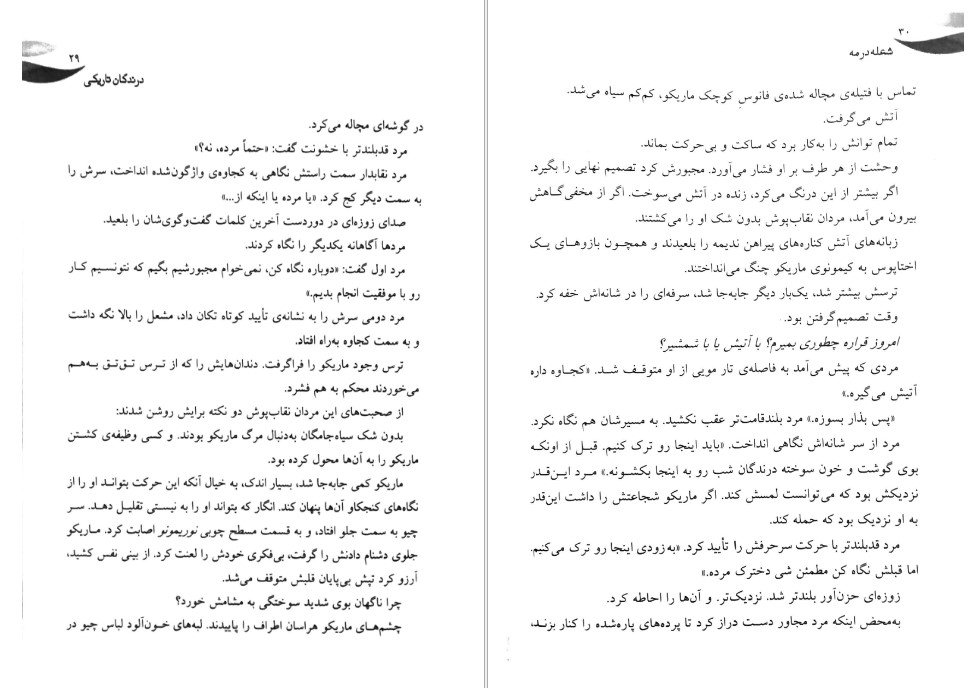 ۲۹
درندگان تاریکی
در گوشه‌ای مچاله می‌کرد.
مرد قدبلندتر با خشونت گفت: «حتماً مرده، نه؟»
مرد نقابدار سمت راستش نگاهی به کجاوه‌ی واژگون‌شده انداخت، سرش را
به سمت دیگر کج کرد. «یا مرده یا اینکه از...»
صدای زوزه‌ای در دوردست آخرین کلمات گفت‌وگوی‌شان را بلعید.
مردها آگاهانه یکدیگر را نگاه کردند.
مرد اول گفت: «دوباره نگاه کن، نمی‌خوام مجبورشیم بگیم که نتونسیم کار
رو با موفقیت انجام بدیم.»
مرد دومی سرش را به نشانه‌ی تأیید کوتاه تکان داد، مشعل را بالا نگه داشت
و به سمت کجاوه به‌راه افتاد.
ترس وجود ماریکو را فراگرفت. دندان‌هایش را که از ترس تق‌تق به‌هم
می‌خوردند محکم به هم فشرد.
از صحبت‌های این مردان نقاب‌پوش دو نکته برایش روشن شدند:
بدون شک سیاه‌جامگان به‌دنبال مرگ ماریکو بودند. و کسی وظیفه‌ی کشتن
ماریکو را به آن‌ها محول کرده بود.
ماریکو کمی جابه‌جا شد، بسیار اندک، به خیال آنکه این حرکت بتواند او را از
نگاه‌های کنجکاو آن‌ها پنهان کند. انگار که بتواند او را به نیستی تقلیل دهد. سر
چیو به سمت جلو افتاد، و به قسمت مسطح چوبی نوریمونو اصابت کرد. ماریکو
جلوی دشنام دادنش را گرفت، بی‌فکری خودش را لعنت کرد. از بینی نفس کشید،
آرزو کرد تپش بی‌پایان قلبش متوقف می‌شد.
چرا ناگهان بوی شدید سوختگی به مشامش خورد؟
چشم‌های ماریکو هراسان اطراف را پاییدند. لبه‌های خون‌آلود لباس چیو در
۳۰
شعله در مه
تماس با فتیله‌ی مچاله شده‌ی فانوس کوچک ماریکو، کم‌کم سیاه می‌شد.
آتش می‌گرفت.
تمام توانش را به‌کار برد که ساکت و بی‌حرکت بماند.
وحشت از هر طرف بر او فشار می‌آورد. مجبورش کرد تصمیم نهایی را بگیرد.
اگر بیشتر از این درنگ می‌کرد، زنده در آتش می‌سوخت. اگر از مخفی‌گاهش
بیرون می‌آمد، مردان نقاب‌پوش بدون شک او را می‌کشتند.
زبانه‌های آتش کناره‌های پیراهن ندیمه را بلعیدند و همچون بازوهای یک
اختاپوس به کیمونوی ماریکو چنگ می‌انداختند.
ترسش بیشتر شد، یک‌بار دیگر جابه‌جا شد، سرفه‌ای را در شانه‌اش خفه کرد.
وقت تصمیم‌گرفتن بود.
امروز قراره چطوری بمیرم؟ با آتیش یا با شمشیر؟
مردی که پیش می‌آمد به فاصله‌ی تار مویی از او متوقف شد. «کجاوه داره
آتیش می‌گیره.»
«پس بذار بسوزه.» مرد بلندقامت‌تر عقب نکشید. به مسیرشان هم نگاه نکرد.
مرد از سر شانه‌اش نگاهی انداخت. «باید اینجا رو ترک کنیم. قبل از اونکه
بوی گوشت و خون سوخته درندگان شب رو به اینجا بکشونه.» مرد این‌قدر
نزدیکش بود که می‌توانست لمسش کند. اگر ماریکو شجاعتش را داشت این‌قدر
به او نزدیک بود که حمله کند.
مرد قدبلندتر با حرکت سرحرفش را تأیید کرد. «به‌زودی اینجا رو ترک می‌کنیم.
اما قبلش نگاه کن مطمئن شی دخترک مرده.»
زوزه‌ای حزن‌آور بلندتر شد. نزدیک‌تر. و آن‌ها را احاطه کرد.
به‌محض اینکه مرد مجاور دست دراز کرد تا پرده‌های پاره‌شده را کنار بزند،